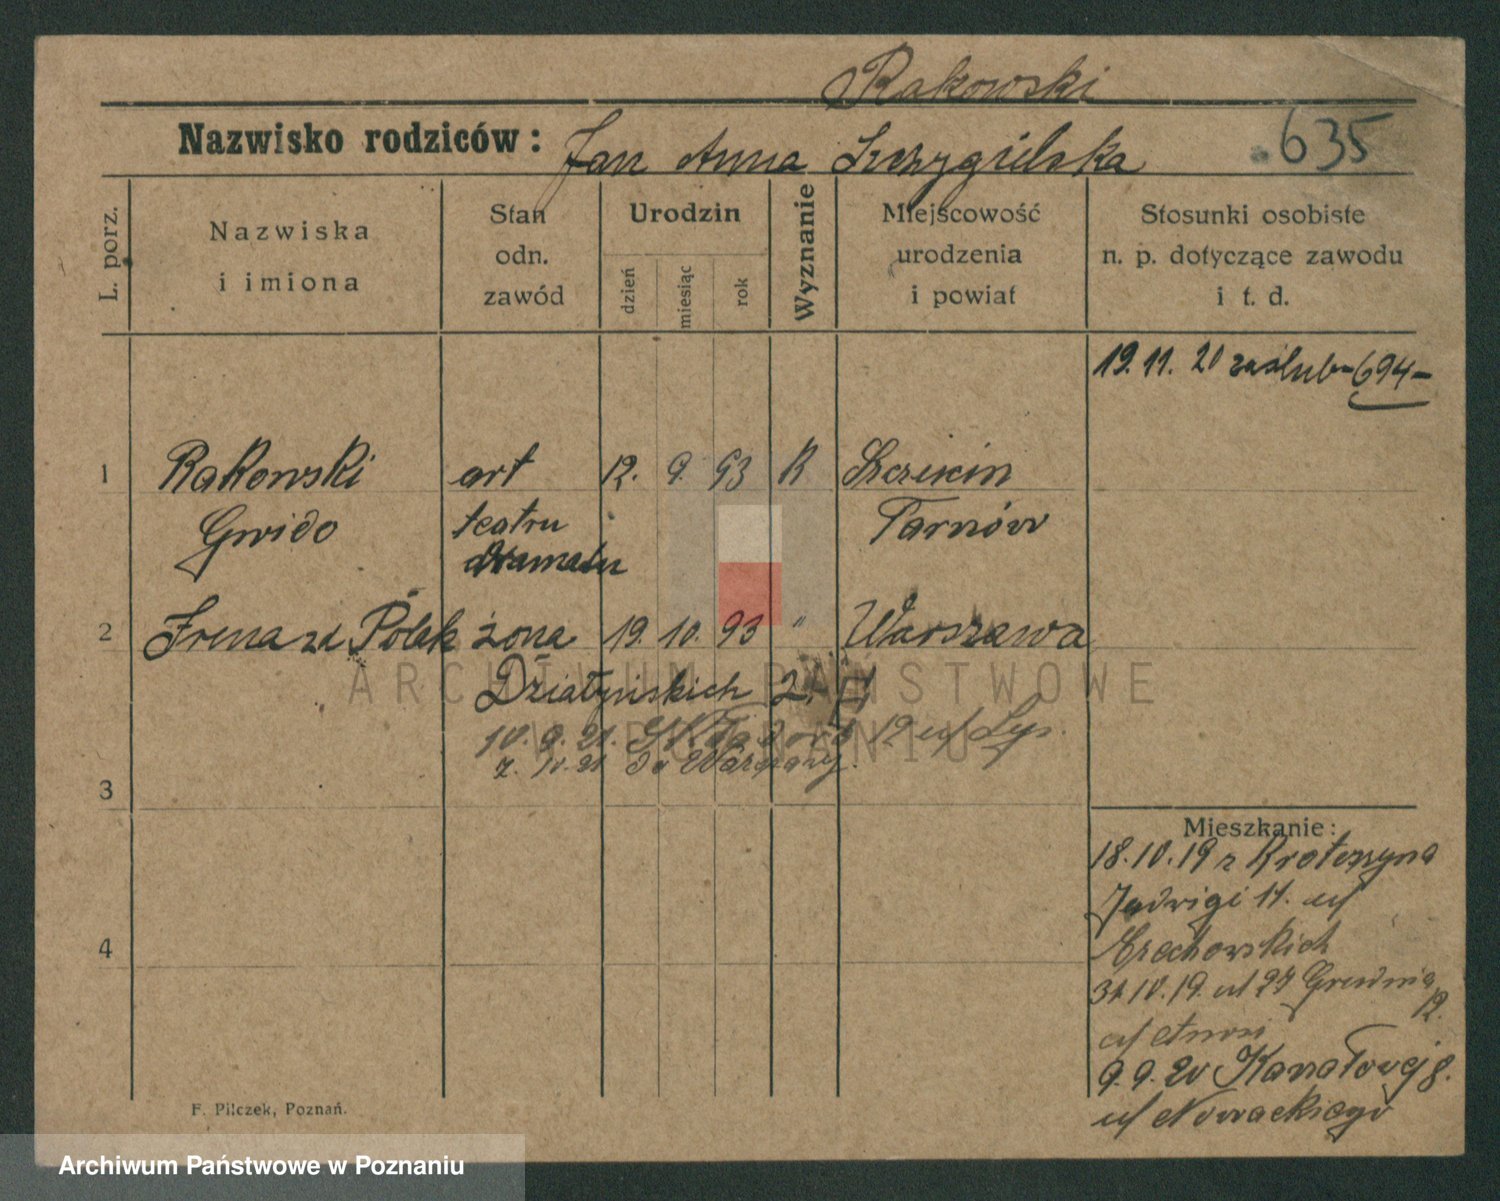 Rakowski
Nazwisko rodziców: Jan Anna Szczygielska
635
L. porz.
Nazwiska i imiona
Stan odn. zawód
Urodzin
dzień
miesiąc
rok
Wyznanie
Miejscowość urodzenia i powiat
Stosunki osobiste n. p. dotyczące zawodu i t. d.
19. 11. 20 zaślub - 694 -
1 Rakowski art 12. 9. 93 K Szczucin
Gwido teatru Tarnów
dramatu
2 Irena zd Polak żona 19. 10. 93 " Warszawa
Działyńskich 2.
10. 9. 21. 12 u/
7. 10. 21 do Warszawy.
3
Mieszkanie:
18. 10. 19 z Krotoszyna
Jadwigi 11. u/
4
31. 10. 19. ul 27 Grudnia
12.
u/
9. 9. 20 Kanałowej 8.
u/ Nowackiego
F. Pilczek, Poznań.
ARCHIWUM PAŃSTWOWE
W POZNANIU
Archiwum Państwowe w Poznaniu